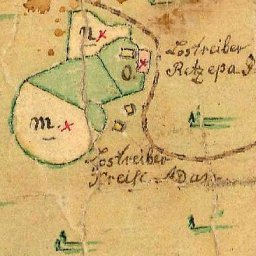 n
Lostreiber
Ritzepa
O
m.
Lostreiber
Kreise Adas